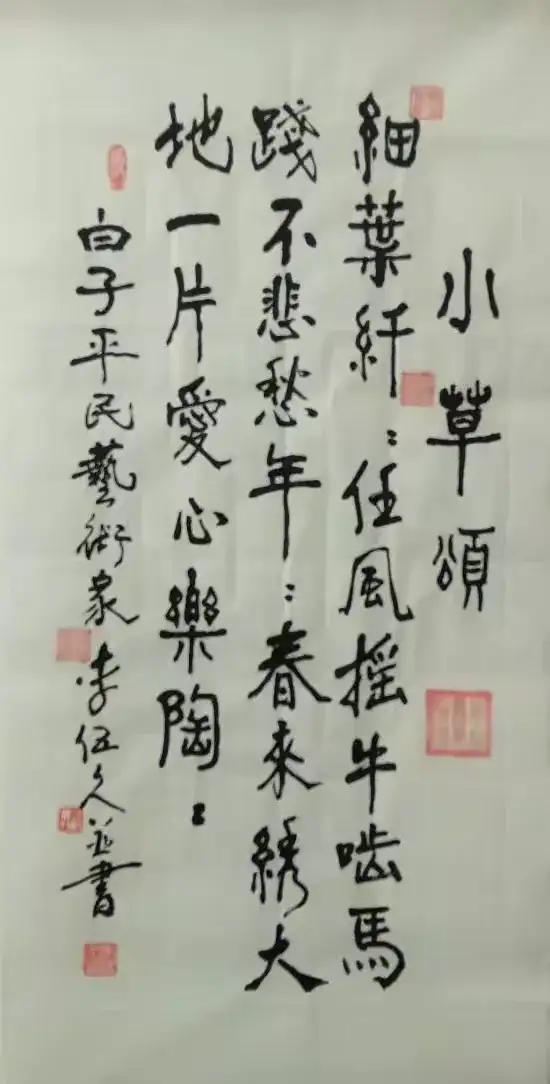 小草頌
細葉纤：任風摇牛啮馬
踐不悲愁年：春來綉大
地一片愛心樂陶：
白子平民藝術家李伍久並書